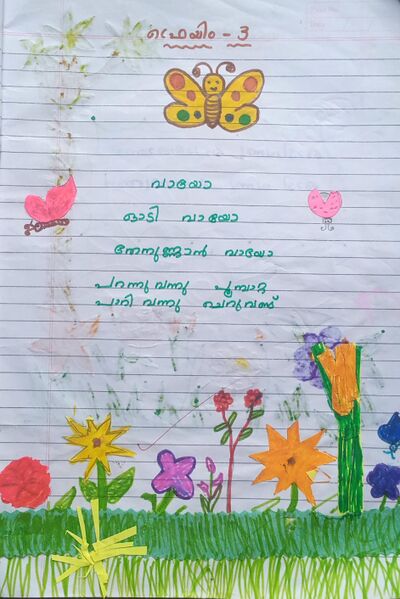 ഫ്രെയിം - 3
വായോ
ഓടി വായോ
തേനുണ്ണാൻ വായോ
പറന്നു വന്നു പൂമ്പാറ്റ
പാറി വന്നു ചെറുവണ്ട്